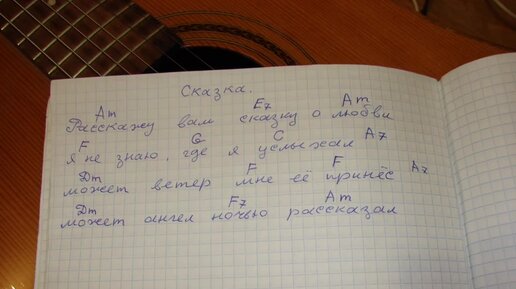 Сказка.
Am E7 Am
Расскажу вам сказку о любви
F G C A7
я не знаю, где я услыхал
Dm F F A7
может ветер мне её принёс
Dm F7 Am
может ангел ночью рассказал